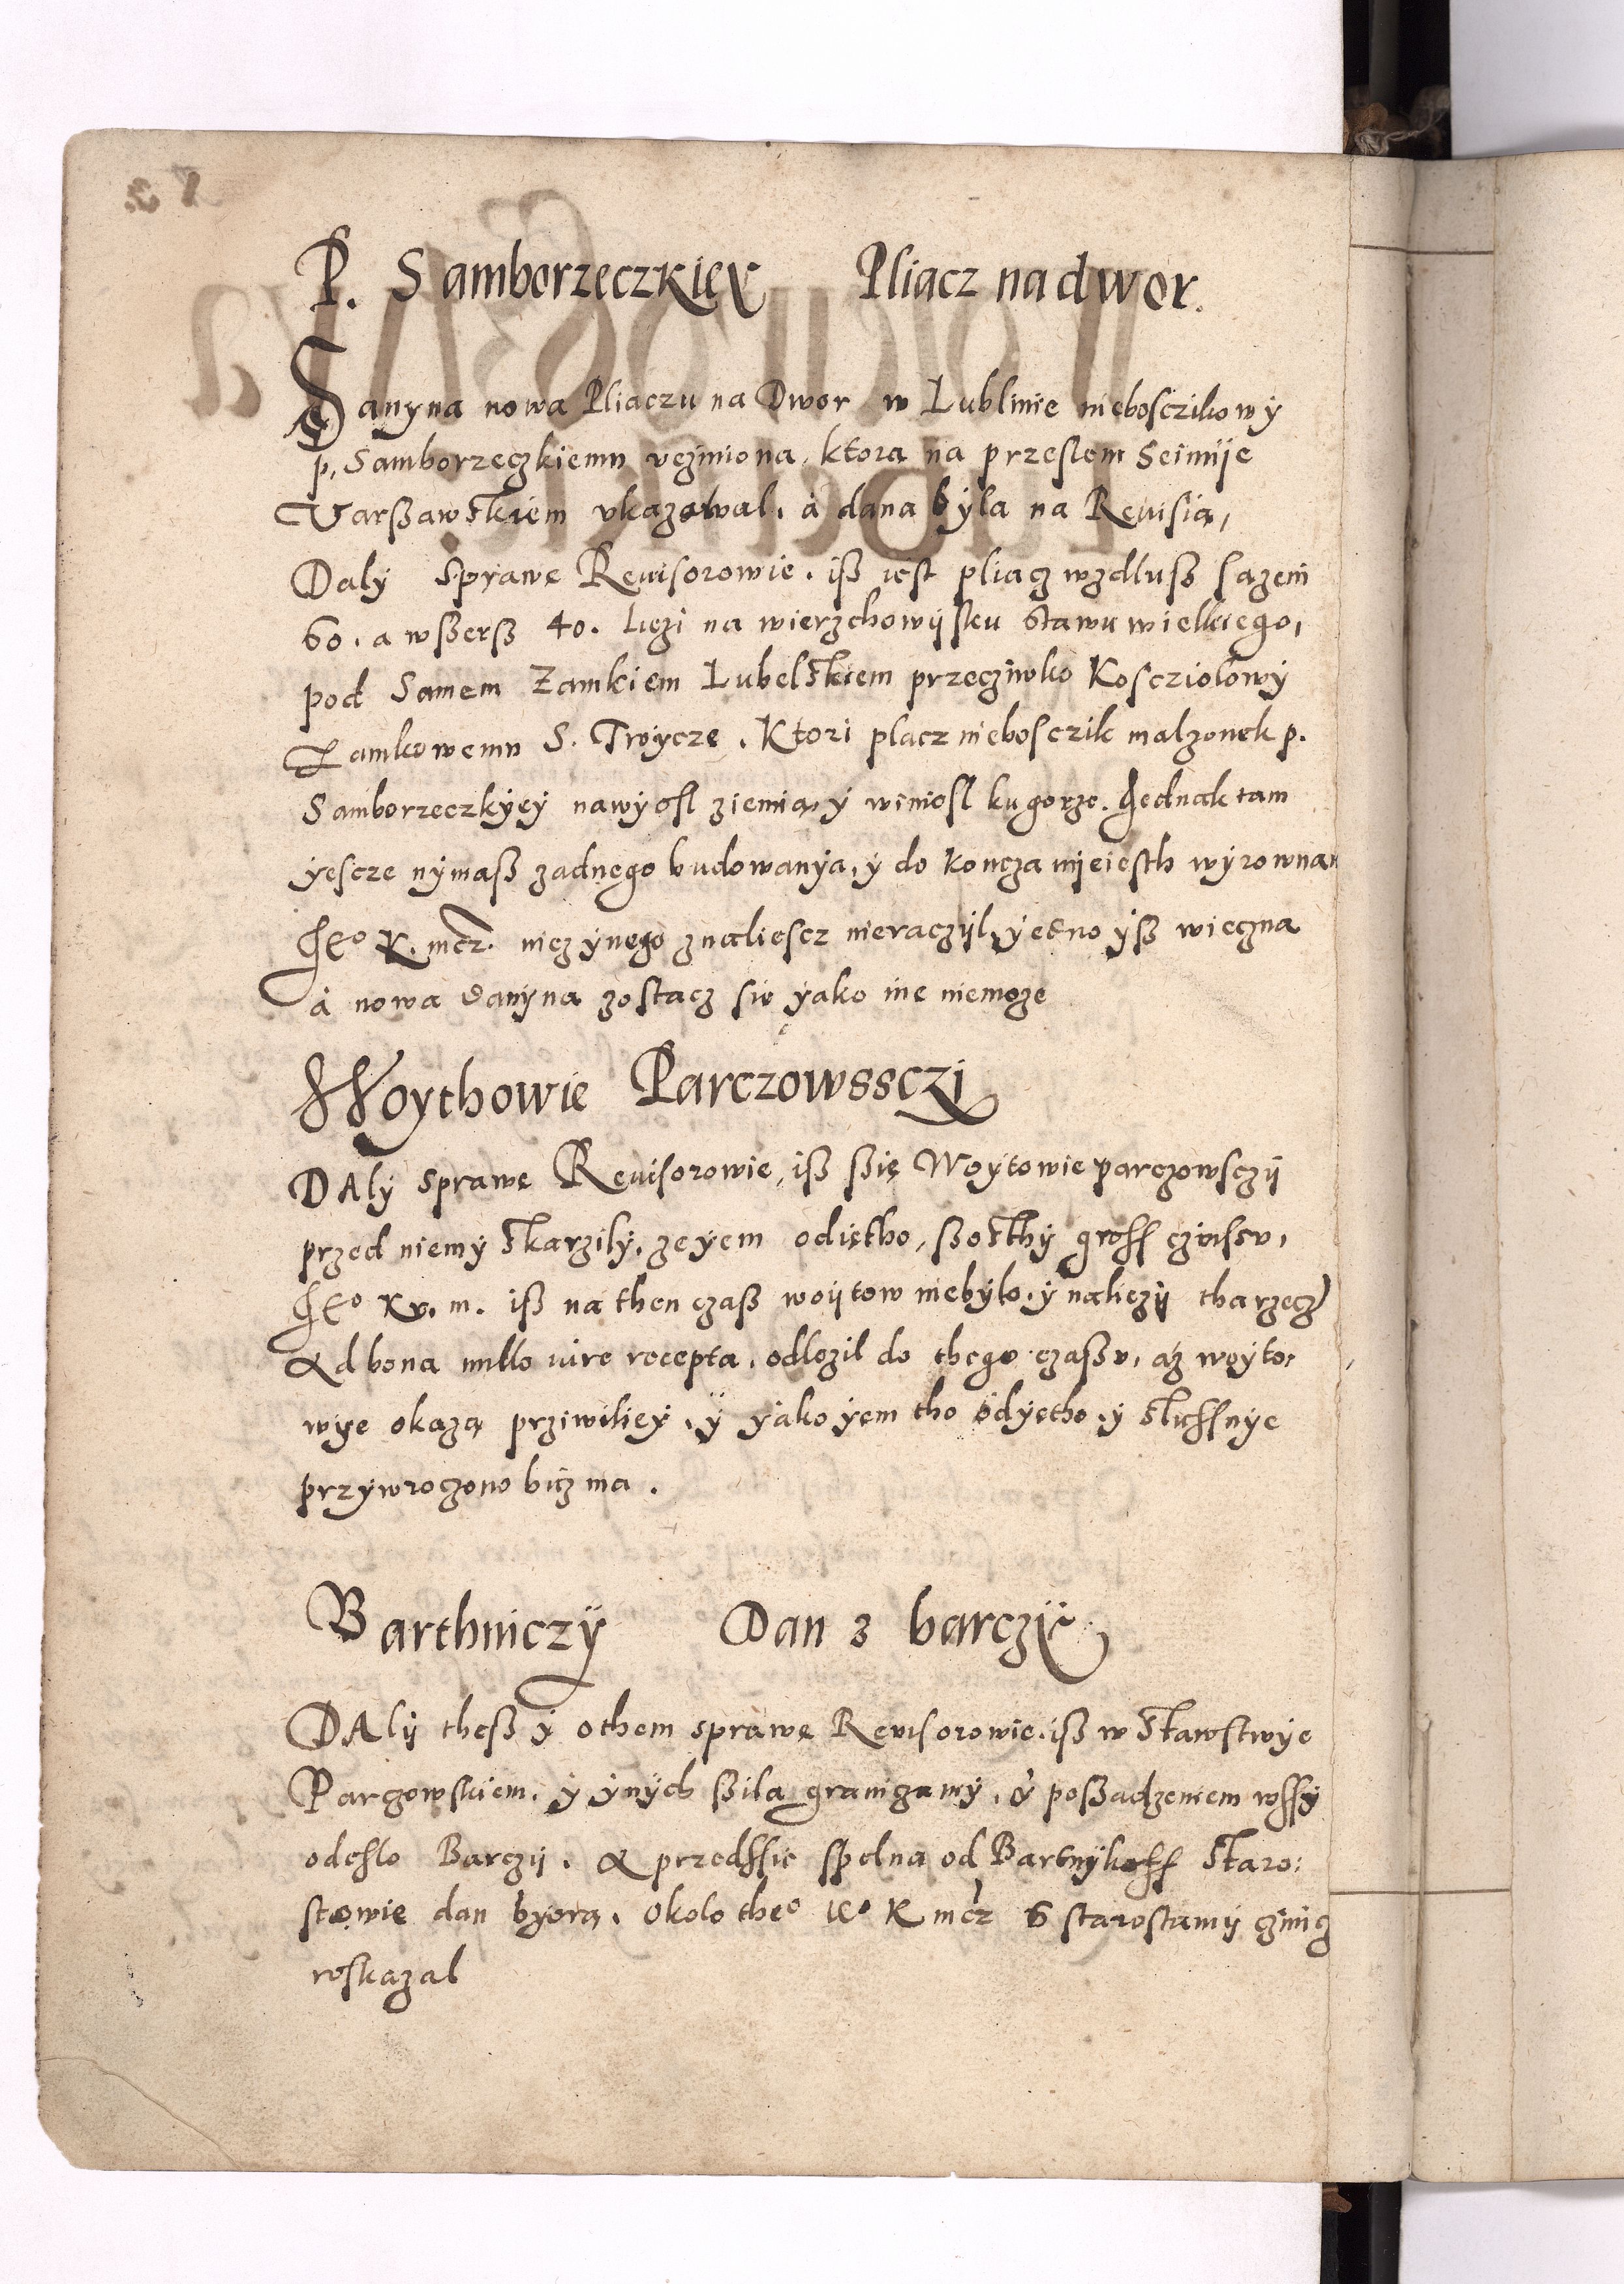 P. Samborzeczkiey Pliacz na dwor.
Danyna nowa Pliaczu na Dwor w Lublinie niebosczikowy
p. Samborzeczkiemu vcziniona, ktora na przeslem Seimije
Varßawskiem vkazowal. à dana byla na Reuisią,
Daly sprawe Reuisorowie. iß iest pliacz wzdluß sazeni
60. a wßerß 40. Liezi na wierzchowijsku stawu wielkiego,
pod Samem Zamkiem Lubelskiem przecziwko Kosciolowy
Zamkowemu S. Troycze. Ktori placz nieboscik malzonek p.
Samborzeczkyey nawyosl ziemią, y winiosl ku gorze. Jednak tam
yescze nymaß zadnego budowanya, y do koncza nijeiesth wyrownan
Je° K. mcz. niczynego znaliescz nieraczyl, yedno yß wieczna
à nowa danyna zostacz sie yako ine niemoze
Woythowie Parczowssczi
DAly sprawe Reuisorowie, iß ßię Woytowie parczowsczij
przed niemy skarzily, ze yem odiętho, ßosthy groß czinssu,
Je° Kr. m. iß na then czaß woijtow niebylo, y naliezij tha rzecz
Ad bona nullo iure recepta, odlozil do thego czaßu, az woyto:
wye okazą prziwiliey, y yako yem tho odyętho, y slussnye
przywroczono bicz ma.
Barthniczy Dan z barczij
DAlij theß y othem sprawe Reuisorowie. iß w stawstwye
Parczowskiem, y ynych ßila graniczamy, y poßadzeniem wssy
odeslo Barczij. A przedssie spelna od Bartnykoff staro:
stowie dan byorą. Okolo the° ie° K mcz z starostamij czinicz
roskazal